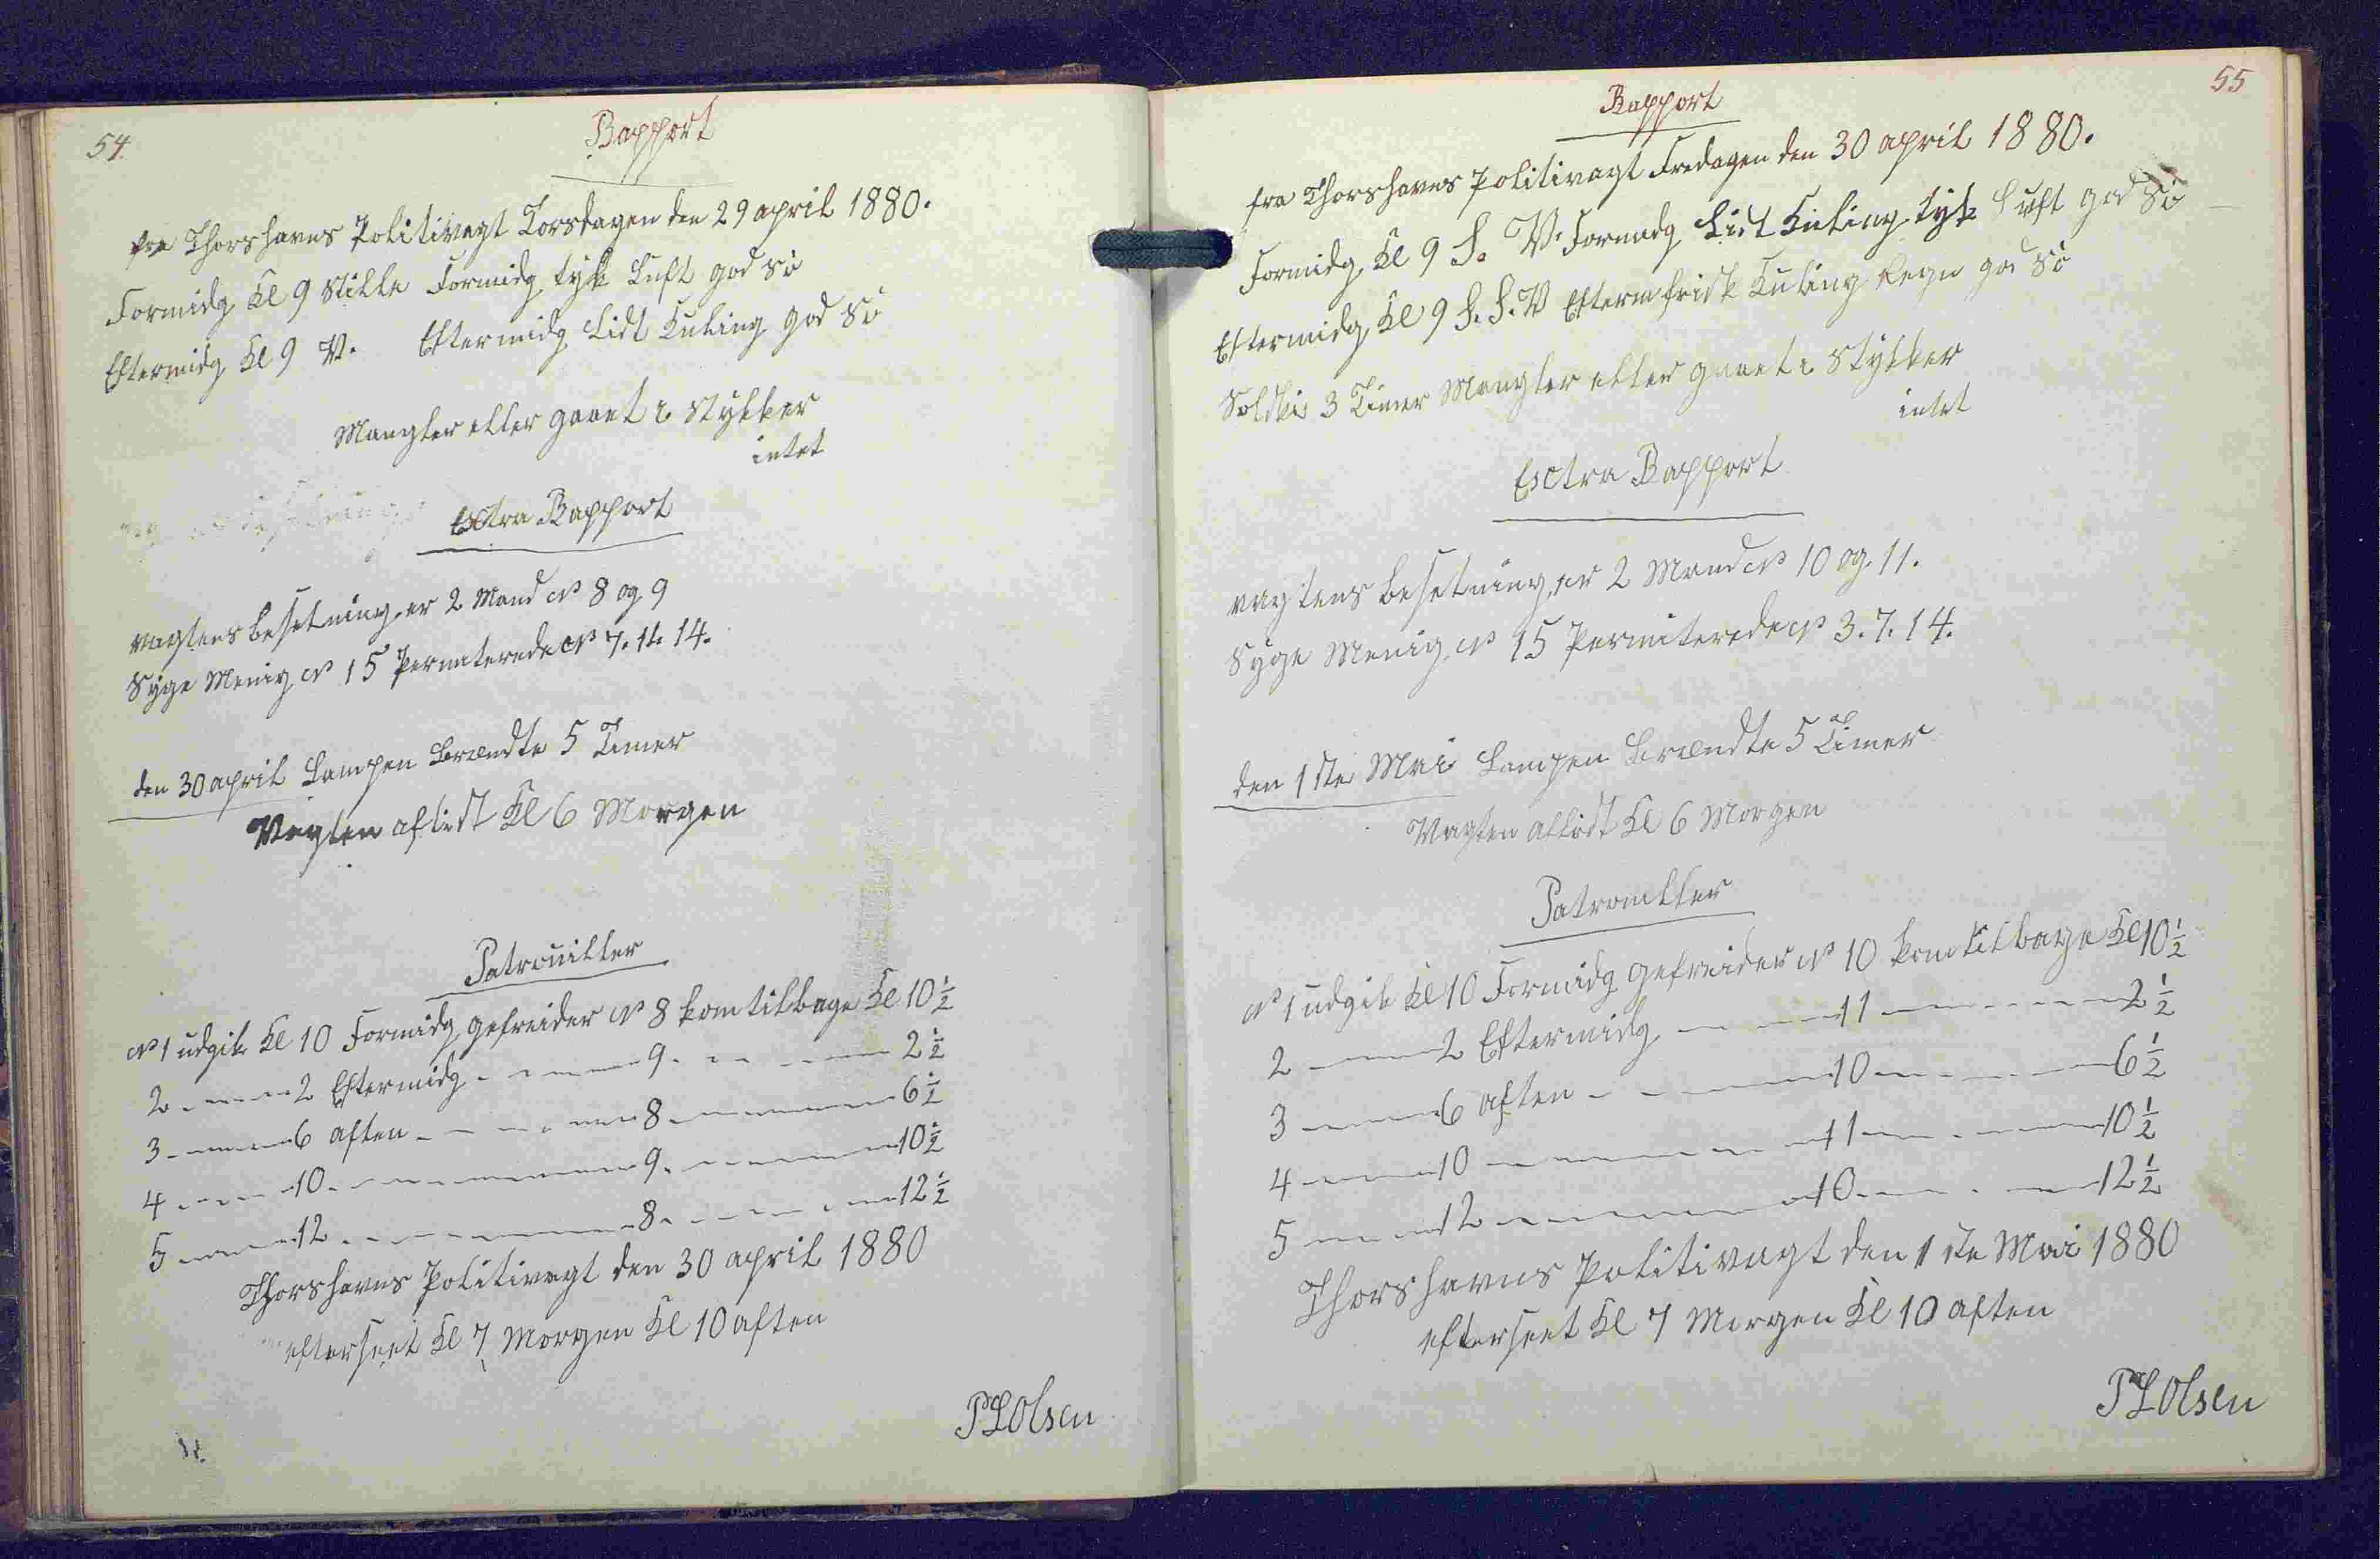 54.
Rapport
fra Thorshavns Politivagt Torsdagen den 29 april 1880.
Formidg Kl 9 Stille Formidg tyk Luft god Sö
Eftermidg Kl 9 V. Eftermidg Lidt Kuling god Sö
Mangler eller gaaet i Stykker
intet
Extra Rapport
Vagtens besetning er 2 Mand No 8 og 9
Syge Menig No 15 Permiterede No 7. 11. 14.
den 30 april Lampen Brændte 5 Timer
Vagten aflöst Kl 6 Morgen
Patrouiller
No 1 udgik Kl 10 Formidg gefreider No 8 kom tilbage Kl 10 1/2
2 — 2 Eftermidg — 9 — 2 1/2
3 — 6 aften — 8 — 6 1/2
4 — 10 — 9 — 10 1/2
5 — 12 — 8 — 12 1/2
Thorshavns Politivagt den 30 april 1880
efterseet Kl 7 Morgen Kl 10 aften
PLOlsen
55
Rapport
fra Thorshavns Politivagt Fredagen den 30 april 1880.
Formidg Kl 9 S. V. Formidg Lidt Kuling tyk Luft god Sö
Eftermidg Kl 9 S. S. V Efterm frisk Kuling Regn god Sö
3 Timer Mangler eller gaaet i Stykker
intet
Extra Rapport
Vagtens besetning er 2 Mand No 10 og 11.
Syge Menig No 15 Permiterede No 3. 7. 14.
den 1ste Mai Lampen Brændte 5 Timer
Vagten aflöst Kl 6 Morgen
Patrouiller
No 1 udgik Kl 10 Formidg gefreider No 10 kom tilbage Kl 10 1/2
2 — 2 Eftermidg — 11 — 2 1/2
3 — 6 aften — 10 — 6 1/2
4 — 10 — 11 — 10 1/2
5 — 12 — 10 — 12 1/2
Thorshavns Politivagt den 1ste Mai 1880
efterseet Kl 7 Morgen Kl 10 aften
PLOlsen